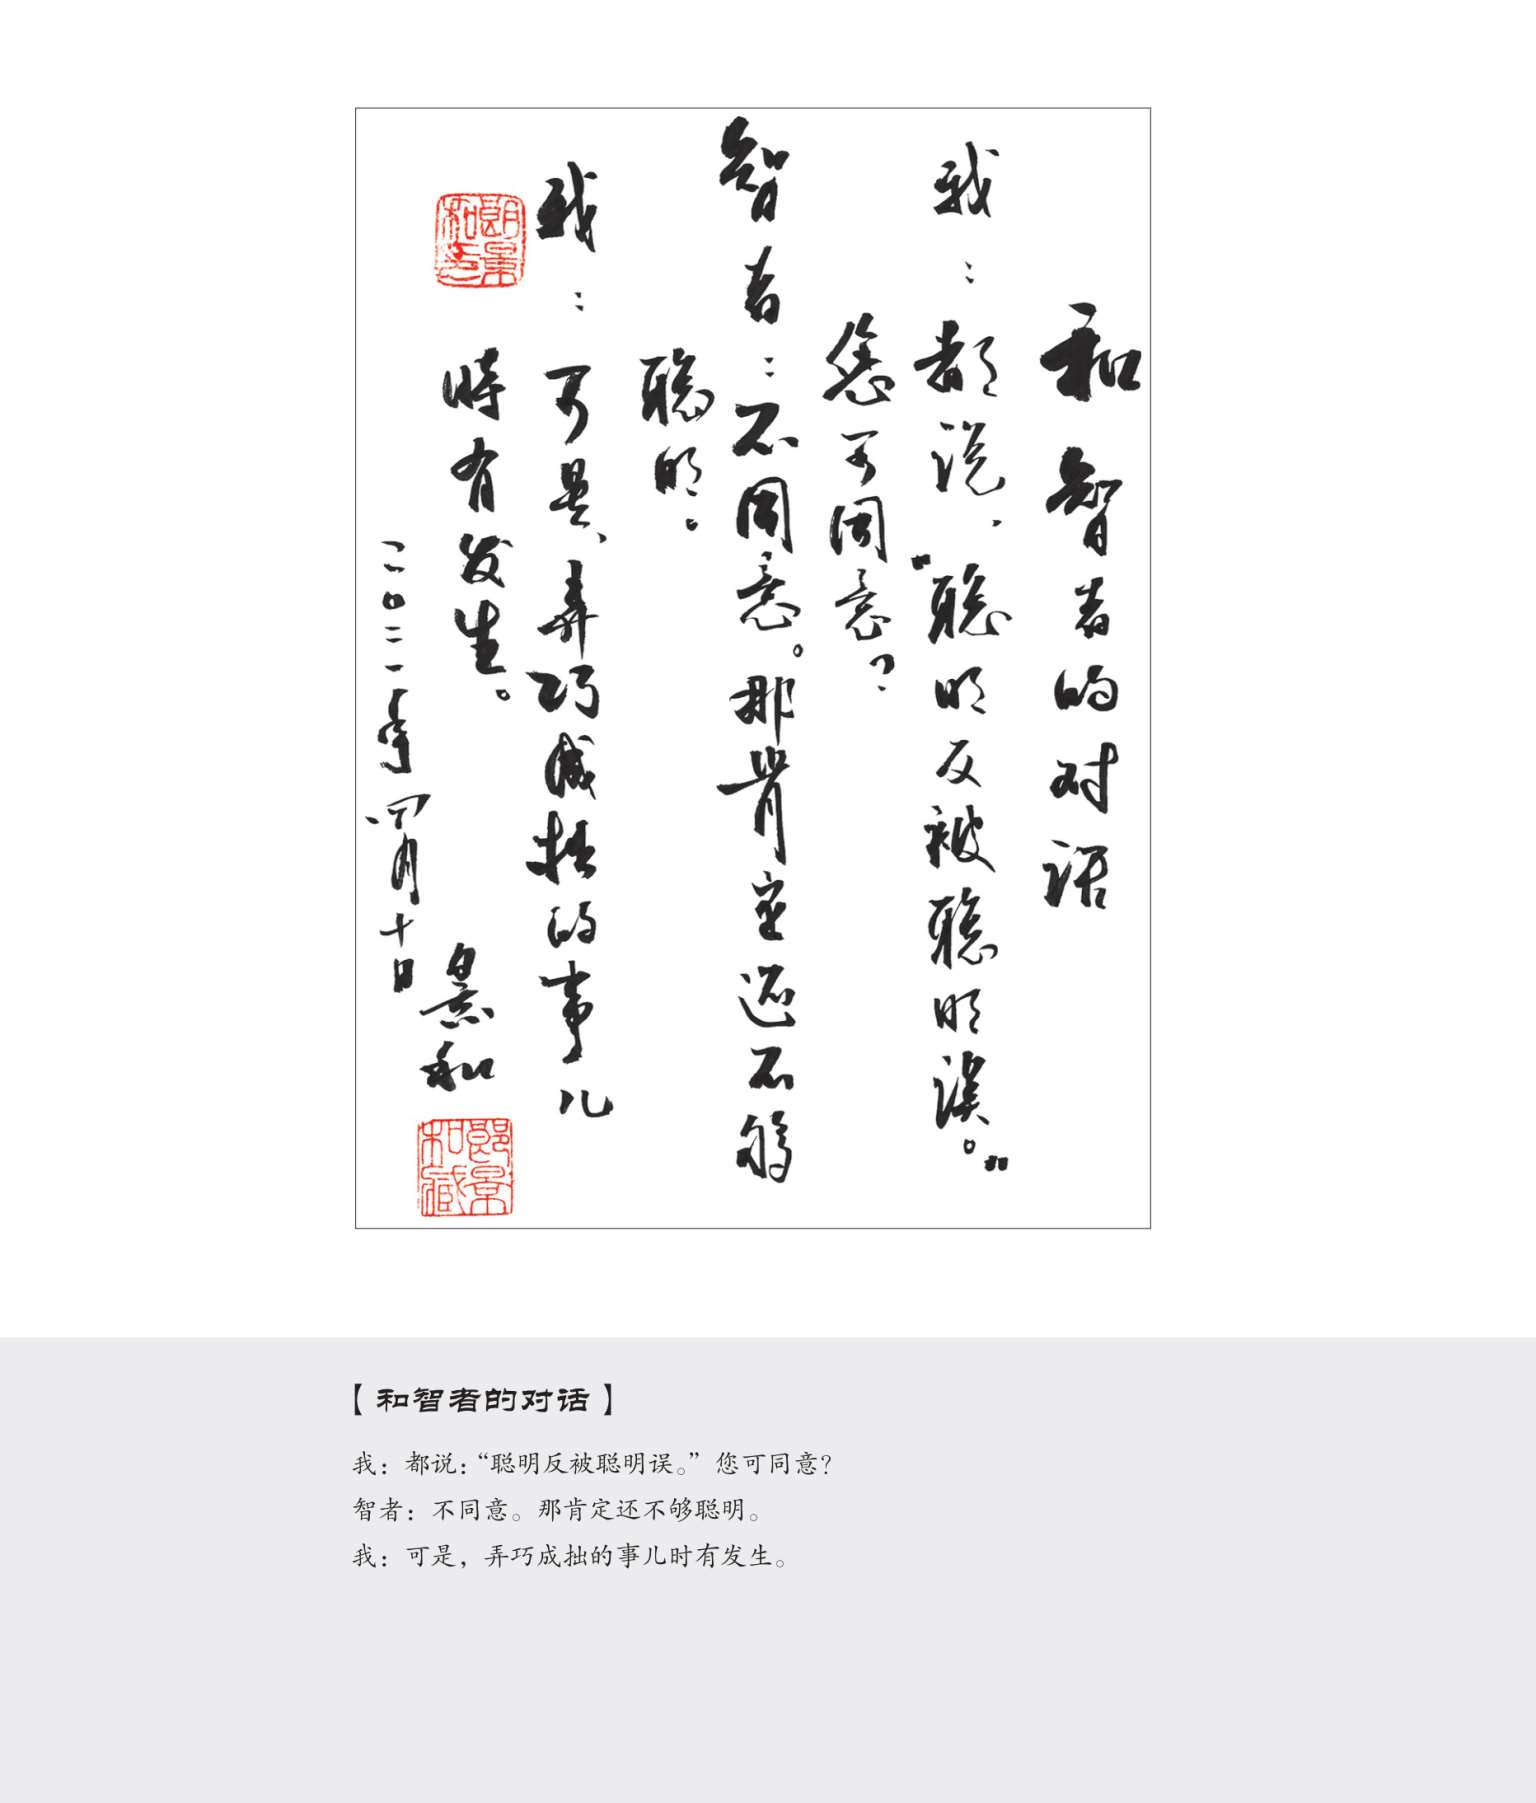 和智者的对话
我：都说，“聪明反被聪明误。”
您可同意？
智者：不同意。那肯定还不够
聪明。
我：可是、弄巧成拙的事儿
時有发生。
景和
二〇二一年四月十日
【和智者的对话】
我：都说：“聪明反被聪明误。”您可同意？
智者：不同意。那肯定还不够聪明。
我：可是，弄巧成拙的事儿时有发生。